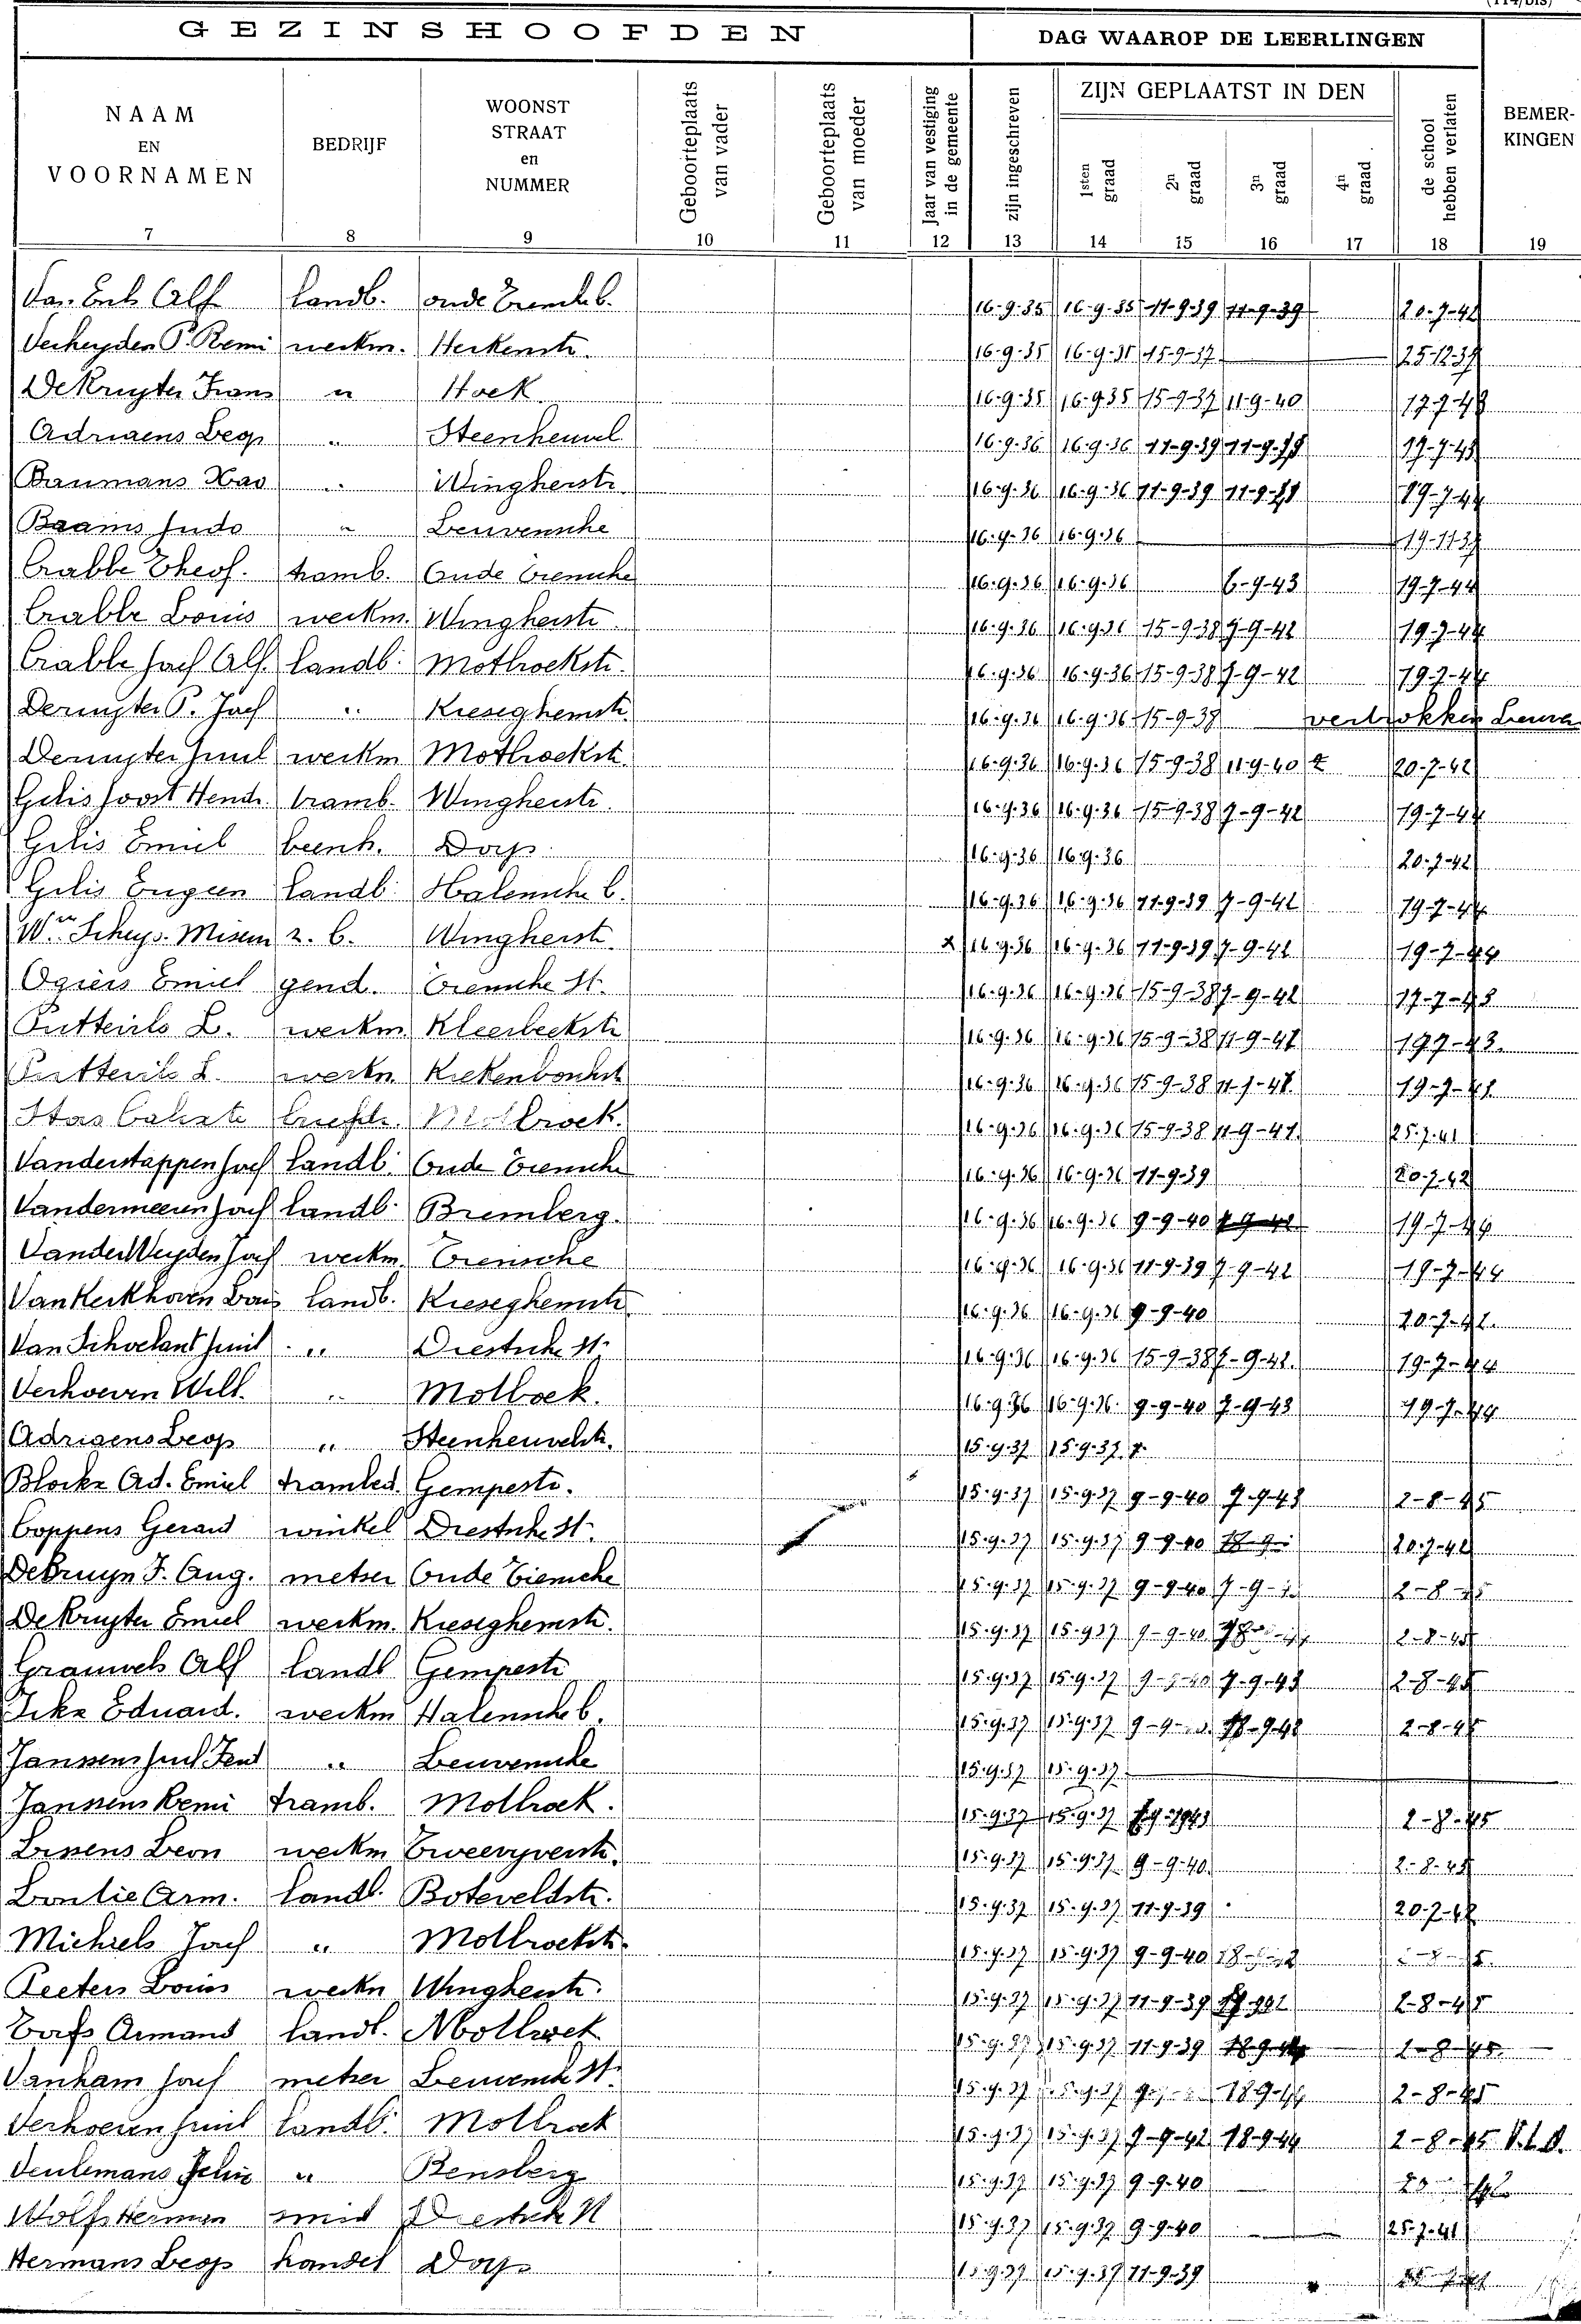 (114/bis)
GEZINSHOOFDEN DAG WAAROP DE LEERLINGEN
NAAM EN VOORNAMEN BEDRIJF WOONST STRAAT en NUMMER Geboorteplaats van vader Geboorteplaats van moeder Jaar van vestiging in de gemeente zijn ingeschreven ZIJN GEPLAATST IN DEN 1sten graad 2n graad 3n graad 4n graad de school hebben verlaten BEMER-KINGEN
7 8 9 10 11 12 13 14 15 16 17 18 19
Alf landb. oude 16-9-35 16-9-35 11-9-39 11-9-39 20-7-42
Verheyden P. Remi werkm. Herkenstr. 16-9-35 16-9-35 15-9-37 25-12-39
DeKruyter Frans " Hoek 16-9-35 16-9-35 15-9-37 11-9-40 17-7-43
Adriaens Leop " Steenheuvel 16-9-36 16-9-36 11-9-39 17-7-43
Baumans " Wingherstr. 16-9-36 16-9-36 11-9-39 19-7-44
Baams Judo " Leuvensche 16-9-36 16-9-36 19-11-37
Crabbe Theof. tramb. Oude Tiensche 16-9-36 16-9-36 6-9-43 19-7-44
Crabbe Louis werkm. Wingherstr. 16-9-36 16-9-36 15-9-38 7-9-42 19-7-44
Crabbe Jozef Alf. landb. Molbroekstr. 16-9-36 16-9-36 15-9-38 7-9-42 19-7-44
Deruyter P. Jozef " Kieseghemstr. 16-9-36 16-9-36 15-9-38 vertrokken
Deruyter Juul werkm Molbroekstr. 16-9-36 16-9-36 15-9-38 11-9-40 20-7-42
Gilis Joost Hendr. tramb. Wingherstr. 16-9-36 16-9-36 15-9-38 7-9-42 19-7-44
Gilis Emiel beenh. Dorp 16-9-36 16-9-36 20-7-42
Gilis Eugeen landb. Halensche b. 16-9-36 16-9-36 11-9-39 7-9-42 19-7-44
Wwe Scheys-Misem z. b. Wingherstr. x 16-9-36 16-9-36 11-9-39 7-9-42 19-7-44
Ogiers Emiel gend. Tiensche St. 16-9-36 16-9-36 15-9-38 7-9-42 17-7-43
Putteirls L. werkm. Kleerbeekstr 16-9-36 16-9-36 15-9-38 11-9-41 17-7-43.
L. werkm. 16-9-36 16-9-36 15-9-38 19-7-41
Stas briefdr. Molbroek. 16-9-36 16-9-36 15-9-38 11-9-41 25-7-41
Vanderstappen Jozef landb. Oude Tiensche 16-9-36 16-9-36 11-9-39 20-7-42
Vandermeeren Jozef landb. Bremberg. 16-9-36 16-9-36 9-9-40 7-9-42 19-7-44
VanderWeyden Jozef werkm. Tiensche 16-9-36 16-9-36 11-9-39 7-9-42 19-7-44
VanKerkhoven Louis landb. Kieseghemstr. 16-9-36 16-9-36 9-9-40 20-7-42.
Van Schoelant Juul " Diestsche St. 16-9-36 16-9-36 15-9-38 7-9-42. 19-7-44
Verhoeven Will. " Molboek. 16-9-36 16-9-36. 9-9-40 7-9-43 19-7-44
Adriaens Leop " Steenheuvelstr. 15-9-37 15-9-37
Blockx Ad. Emiel trambed. Gempestr. 15-9-37 15-9-37 9-9-40 7-9-43 2-8-45
Coppens Gerard winkel Diestsche St. 15-9-37 15-9-37 9-9-40 20-7-42
DeBruyn F. Aug. metser Oude Tiensche 15-9-37 15-9-37 9-9-40 2-8-45
DeKruyter Emiel werkm. Kieseghemstr. 15-9-37 15-9-37 9-9-40 2-8-45
Grauwels Alf landb Gempestr 15-9-37 15-9-37 7-9-43 2-8-45
Eduard. werkm Halensche b. 15-9-37 15-9-37 18-9-42 2-8-45
Janssens Juul " Leuvensche 15-9-37 15-9-37
Janssens Remi tramb. Molbroek. 15-9-37 15-9-37 2-8-45
Lissens Leon werkm Tweevyverstr. 15-9-37 15-9-37 9-9-40. 2-8-45
Arm. landb. Boteveldstr. 15-9-37 15-9-37 11-9-39 20-7-42
Michiels Jozef " Molbroekstr. 15-9-37 15-9-37 9-9-40
Peeters Louis werkm Wingherstr. 15-9-37 15-9-37 11-9-39 2-8-45
Torfs Armand landb. Molbroek 15-9-37 15-9-37 11-9-39 18-9-44 2-8-45
Vanham Jozef metser Leuvensche St. 15-9-37 15-9-37 18-9-44 2-8-45
Verhoeven Juul landb. Molbroek 15-9-37 15-9-37 7-9-42 18-9-44 2-8-45
Veulemans " Rensberg 15-9-37 15-9-37 9-9-40
Wolfs Herman smid Diestsche St 15-9-37 15-9-37 9-9-40 25-7-41
Hermans Leop handel Dorp 15-9-37 15-9-37 11-9-39